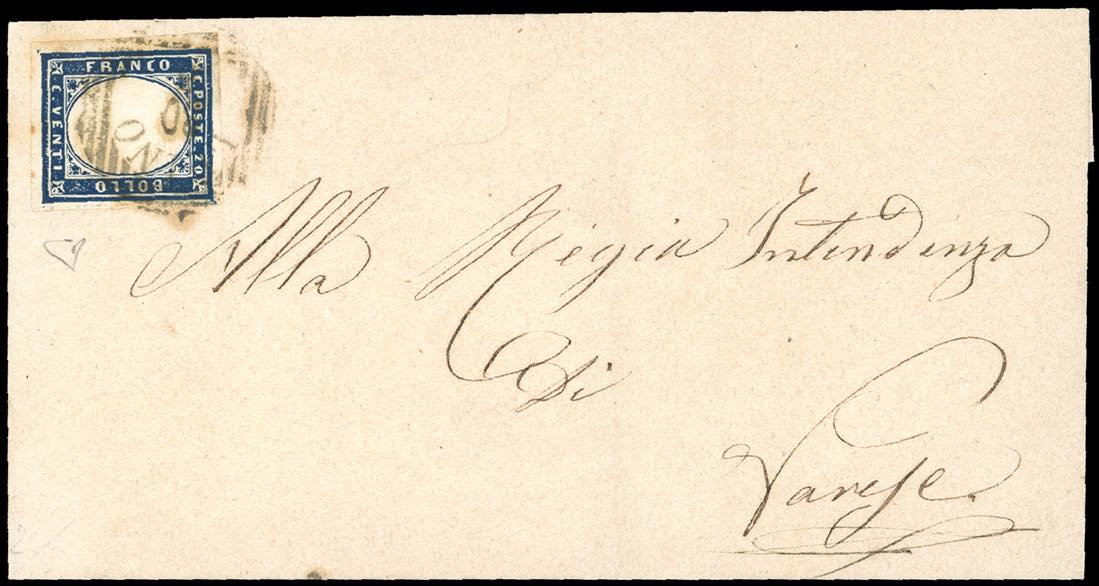 FRANCO
C. POSTE. 20
BOLLO
C. VENTI.
Alla Regia Intendenza
Di
Varese.